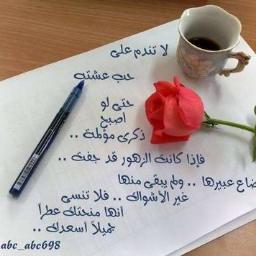 لا تندم على
حب عشته
حتى لو
أصبح
ذكرى مؤلمة ..
فإذا كانت الزهور قد جفت ..
ضاع عبيرها .. ولم يبقى منها
غير الأشواك .. فلا تنسى
انها منحتك عطرا
جميلاً اسعدك ..
abc_abc698